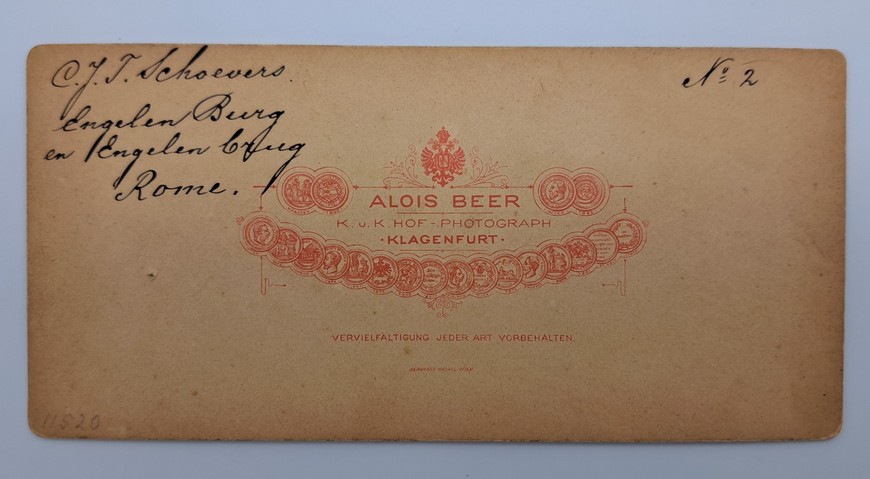 C. J. T. Schoevers.
No 2
Engelen Burg
en Engelen brug
Rome.
ALOIS BEER
K. u. K. HOF-PHOTOGRAPH
·KLAGENFURT·
VERVIELFÄLTIGUNG JEDER ART VORBEHALTEN.
WIEN
11520